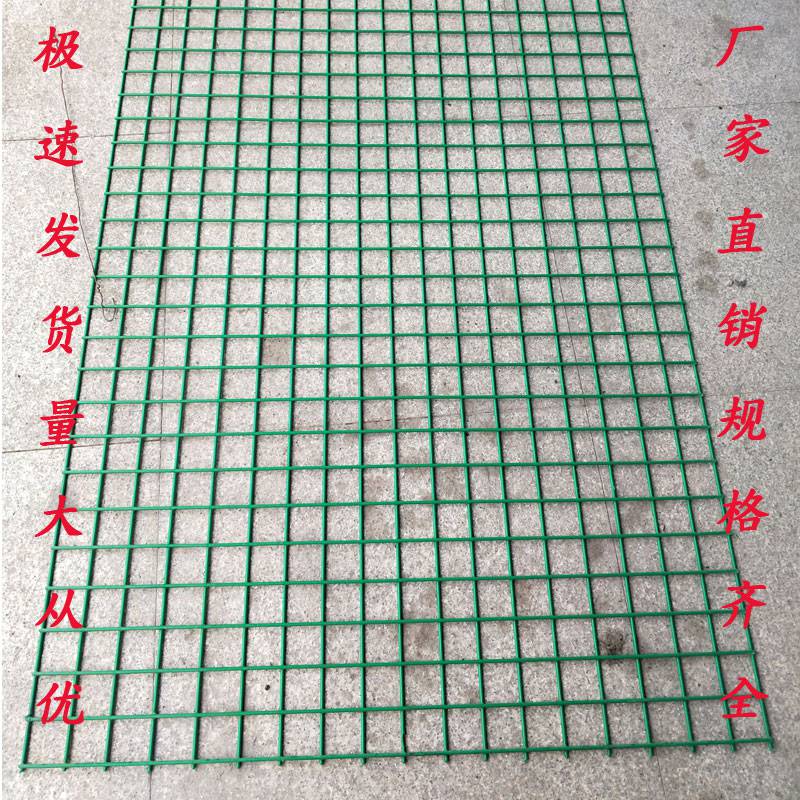 极速发货量大从优
厂家直销规格齐全